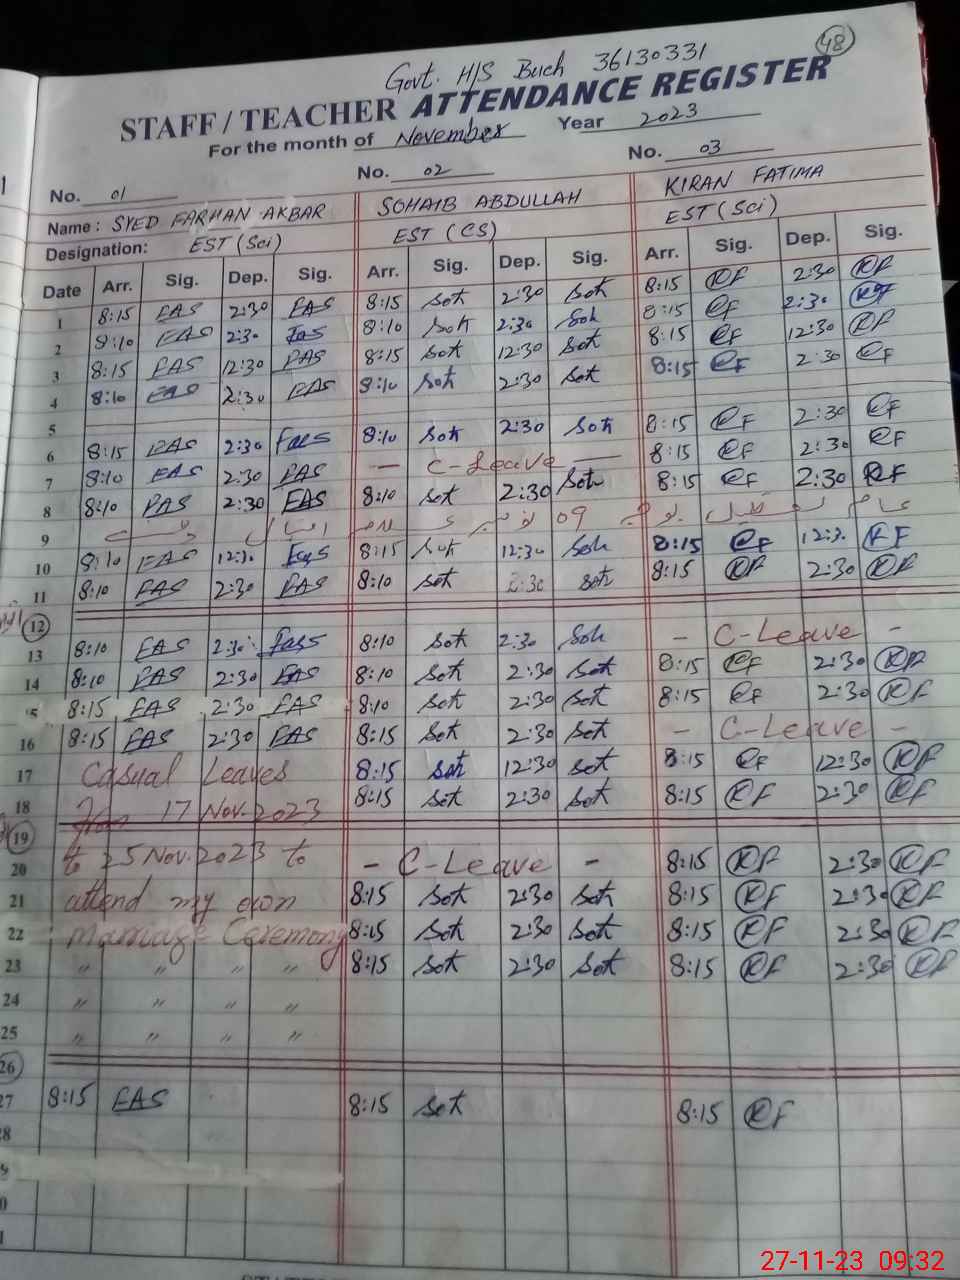 48
Govt. H/S Buch 36130331
STAFF / TEACHER ATTENDANCE REGISTER
For the month of November Year 2023
No. 01 No. 02 No. 03
Name : SYED FARHAN AKBAR SOHAIB ABDULLAH KIRAN FATIMA
Designation: EST (Sci) EST (CS) EST (Sci)
Date Arr. Sig. Dep. Sig. Arr. Sig. Dep. Sig. Arr. Sig. Dep. Sig.
1 8:15 FAS 2:30 FAS 8:15 Soh 2:30 Soh 8:15 KF 2:30 KF
2 8:10 FAS 2:30 FAS 8:10 Soh 2:30 Soh 8:15 KF 2:30 KF
3 8:15 FAS 12:30 FAS 8:15 Soh 12:30 Soh 8:15 KF 12:30 KF
4 8:10 FAS 2:30 FAS 8:10 Soh 2:30 Soh 8:15 KF 2:30 KF
5
6 8:15 FAS 2:30 FAS 8:10 Soh 2:30 Soh 8:15 KF 2:30 KF
7 8:10 FAS 2:30 FAS - C-Leave - 8:15 KF 2:30 KF
8 8:10 FAS 2:30 FAS 8:10 Soh 2:30 Soh 8:15 KF 2:30 KF
9 عام تعطیل 09 نومبر
10 8:10 FAS 12:30 FAS 8:15 Soh 12:30 Soh 8:15 KF 12:30 KF
11 8:10 FAS 2:30 FAS 8:10 Soh 2:30 Soh 8:15 KF 2:30 KF
12
13 8:10 FAS 2:30 FAS 8:10 Soh 2:30 Soh - C-Leave -
14 8:10 FAS 2:30 FAS 8:10 Soh 2:30 Soh 8:15 KF 2:30 KF
15 8:15 FAS 2:30 FAS 8:10 Soh 2:30 Soh 8:15 KF 2:30 KF
16 8:15 FAS 2:30 FAS 8:15 Soh 2:30 Soh - C-Leave -
17 Casual Leaves 8:15 Soh 12:30 Soh 8:15 KF 12:30 KF
18 From 17 Nov. 2023 8:15 Soh 2:30 Soh 8:15 KF 2:30 KF
19
20 to 25 Nov. 2023 to - C-Leave - 8:15 KF 2:30 KF
21 attend my own 8:15 Soh 2:30 Soh 8:15 KF 2:30 KF
22 Marriage Ceremony 8:15 Soh 2:30 Soh 8:15 KF 2:30 KF
23 " " " " 8:15 Soh 2:30 Soh 8:15 KF 2:30 KF
24 " " " "
25 " " " "
26
27 8:15 FAS 8:15 Soh 8:15 KF
28
27-11-23 09:32